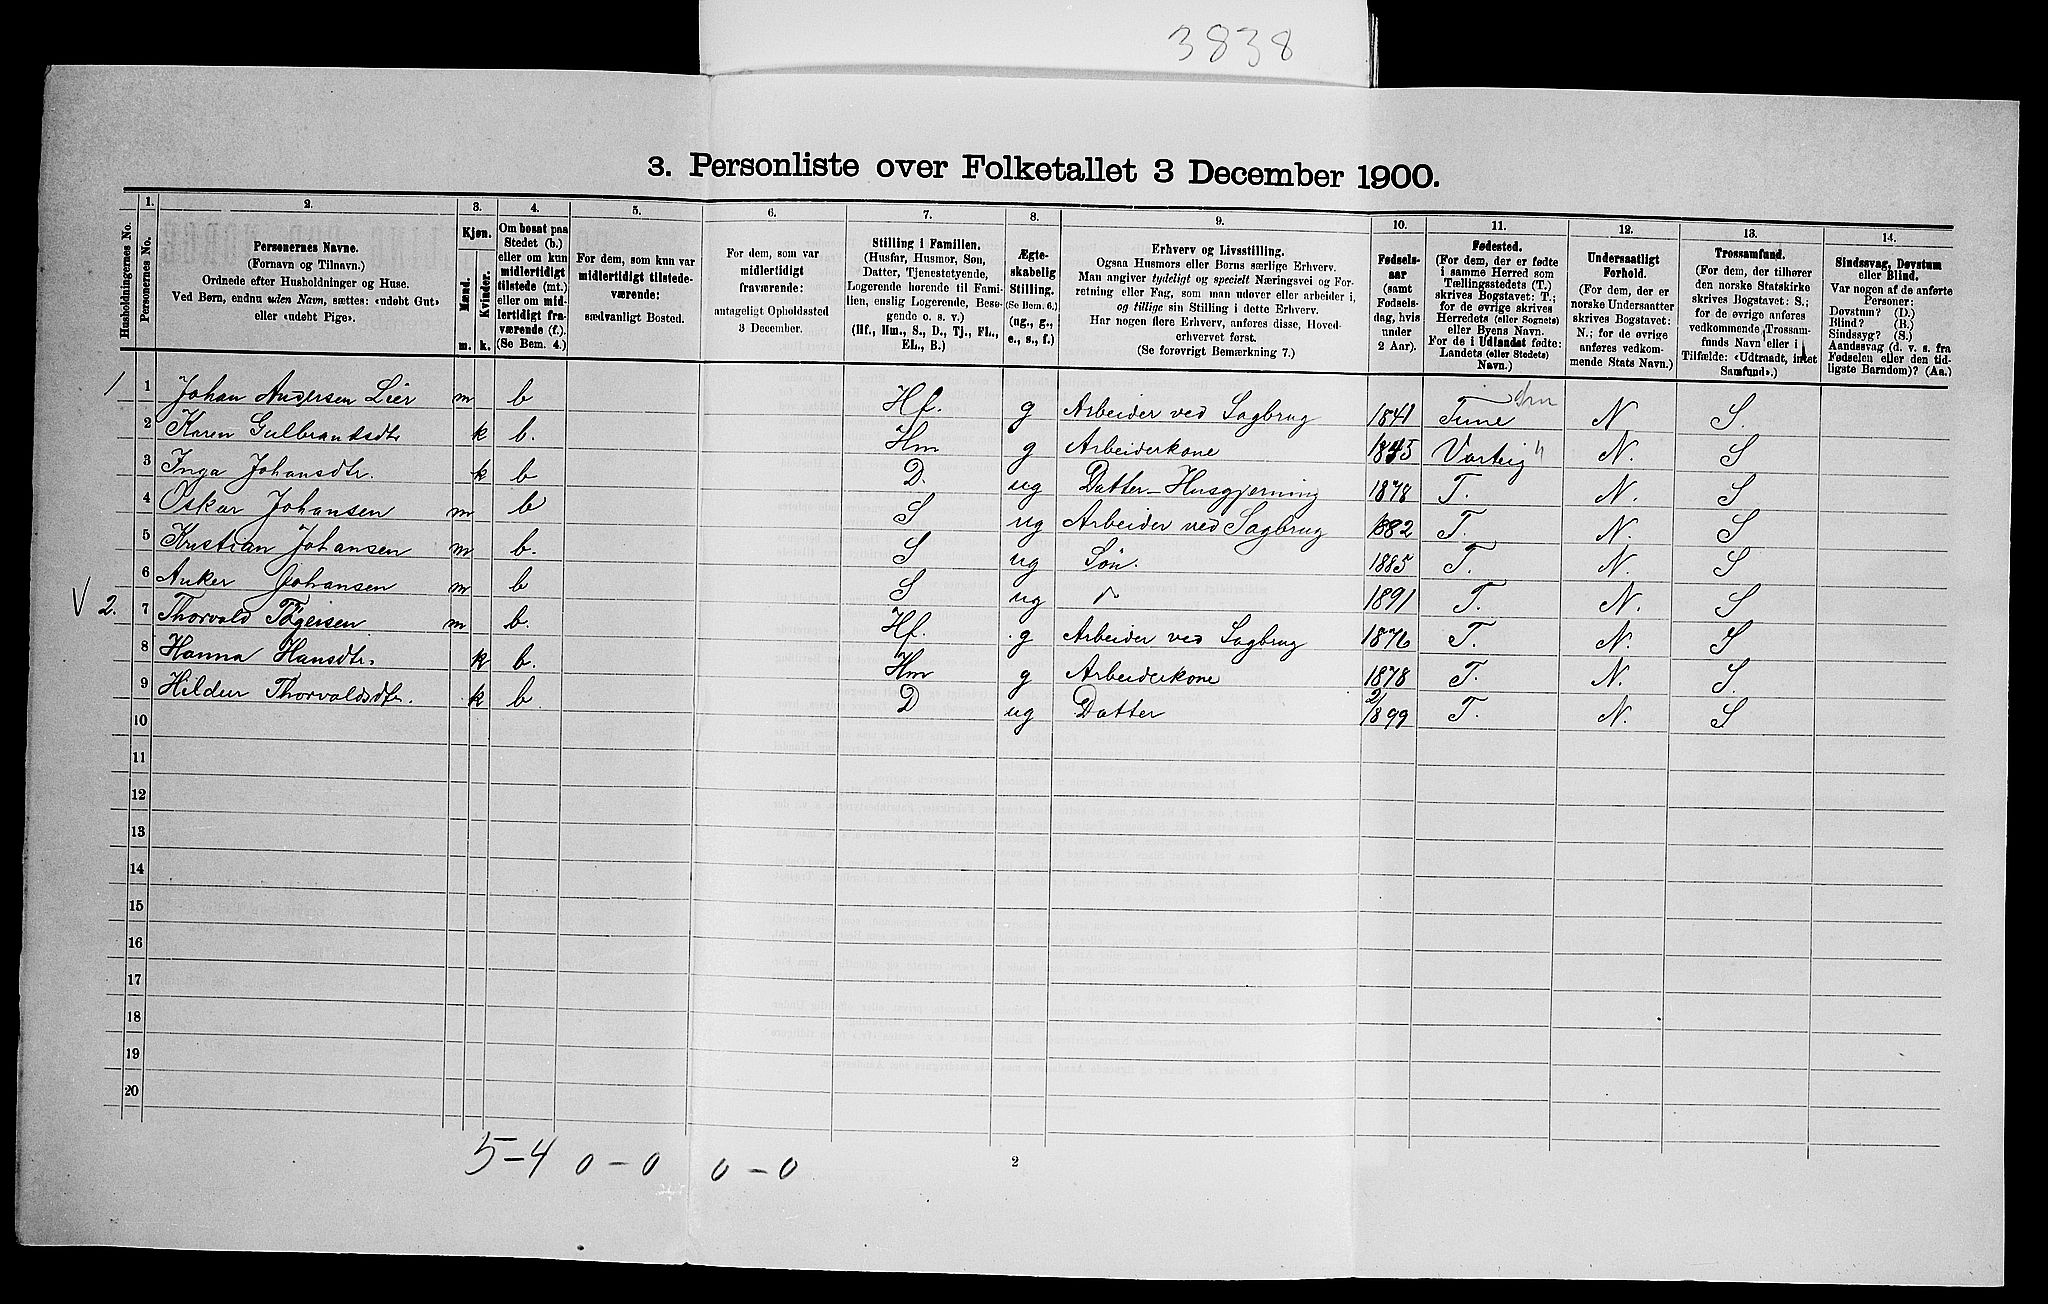 3838
3. Personliste over Folketallet 3 December 1900.
Husholdningernes No.
1.
Personernes No.
2.
Personernes Navne.
(Fornavn og Tilnavn.)
Ordnede efter Husholdninger og Huse.
Ved Børn, endnu uden Navn, sættes: «udøbt Gut»
eller «udøbt Pige».
3.
Kjøn.
Mænd.
Kvinder.
m.
k.
4.
Om bosat paa
Stedet (b.)
eller om kun
midlertidigt
tilstede (mt.)
eller om mid-
lertidigt fra-
værende (f.).
(Se Bem. 4.)
5.
For dem, som kun var
midlertidigt tilstede-
værende:
sædvanligt Bosted.
6.
For dem, som var
midlertidigt
fraværende:
antageligt Opholdssted
3 December.
7.
Stilling i Familien.
(Husfar, Husmor, Søn,
Datter, Tjenestetyende,
Logerende hørende til Fami-
lien, enslig Logerende, Besø-
gende o. s. v.)
(Hf., Hm., S., D., Tj., FL.,
EL., B.)
8.
Ægte-
skabelig
Stilling.
(Se Bem. 6.)
(ug., g.,
e., s., f.)
9.
Erhverv og Livsstilling.
Ogsaa Husmors eller Børns særlige Erhverv.
Man angiver tydeligt og specielt Næringsvei og For-
retning eller Fag, som man udøver eller arbeider i,
og tillige sin Stilling i dette Erhverv.
Har nogen flere Erhverv, anføres disse, Hoved-
erhvervet først.
(Se forøvrigt Bemærkning 7.)
10.
Fødsels-
aar
(samt
Fødsels-
dag, hvis
under
2 Aar).
11.
Fødested.
(For dem, der er fødte
i samme Herred som
Tællingsstedets (T.)
skrives Bogstavet: T.;
for de øvrige skrives
Herredets (eller Sognets)
eller Byens Navn.
For de i Udlandet fødte:
Landets (eller Stedets)
Navn.)
12.
Undersaatligt
Forhold.
(For dem, der er
norske Undersaatter
skrives Bogstavet:
N.; for de øvrige
anføres vedkom-
mende Stats Navn.)
13.
Trossamfund.
(For dem, der tilhører
den norske Statskirke
skrives Bogstavet: S.;
for de øvrige anføres
vedkommende Trossam-
funds Navn eller i
Tilfælde: «Udtraadt, intet
Samfund».)
14.
Sindssvag, Døvstum
eller Blind.
Var nogen af de anførte
Personer:
Døvstum? (D.)
Blind? (B.)
Sindssyg? (S.)
Aandssvag (d. v. s. fra
Fødselen eller den tid-
ligste Barndom)? (Aa.)
1 1 Johan Andersen Lier m b Hf. g Arbeider ved Sagbrug 1841 Tune N. S.
2 Karen Gulbrandsdtr k b. Hm g Arbeiderkone 1845 Varteig " N. S
3 Inga Johansdtr. k b D. ug Datter - Husgjerning 1878 T. N. S
4 Oskar Johansen m b S ug Arbeider ved Sagbrug 1882 T. N. S
5 Kristian Johansen m b. S ug Søn. 1885 T. N. S
6 Anker Johansen m b S ug 1891 T. N. S
V 2. 7 Thorvald m b. Hf. g Arbeider ved Sagbrug 1876 T. N. S
8 Hanna Hansdtr. k b. Hm g Arbeiderkone 1878 T. N. S.
9 Hildur Thorvaldsdtr. k b D ug Datter 2/1899 T. N. S
10
11
12
13
14
15
16
17
18
19
20
5-4 0-0 0-0
2